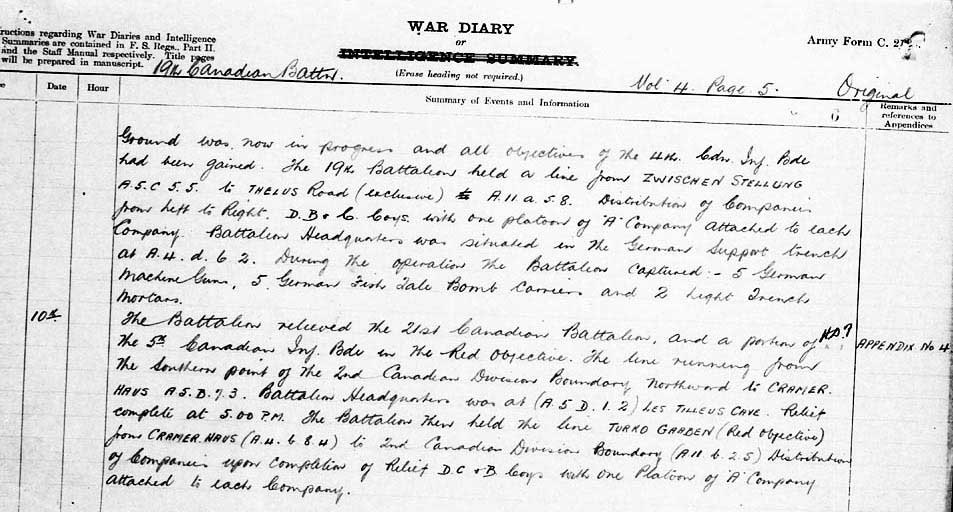 WAR DIARY
or
INTELLIGENCE SUMMARY.
(Erase heading not required.)
Army Form C. 2
ructions regarding War Diaries and Intelligence
Summaries are contained in F. S. Regs., Part II.
and the Staff Manual respectively. Title pages
will be prepared in manuscript.
19th Canadian Battn.
Vol 4. Page 5.
Original
Date
Hour
Summary of Events and Information
Remarks and
references to
Appendices
6
Ground was now in progress and all objectives of the 4th Cdn Inf. Bde
had been gained. The 19th Battalion held a line from ZWISCHEN STELLUNG
A.5.C 5.5. to THELUS Road (exclusive) A.11 a. 5.8. Distribution of Companies
from Left to Right. D. B & C. Coys. with one platoon of "A" Company attached to each
Company. Battalion Headquarters was situated in the German Support trench
at A.4.d.6 2. During the operation the Battalion Captured:- 5 German
Machine Guns, 5 German Fish Tale Bomb Carriers and 2 Light Trench
Mortars.
10th
The Battalion relieved the 21st Canadian Battalion, and a portion of
the 5th Canadian Inf. Bde in the Red Objective. The line running from
APPENDIX No 4.
the Southern point of the 2nd Canadian Division Boundary, Northward to CRAMER.
HAUS A.5.B.7.3. Battalion Headquarters was at (A 5 D. 1. 2) LES TILLEUS CAVE. Relief
complete at 5.00 P.M. The Battalion then held the line TURKO GRABEN (Red Objective)
from CRAMER HAUS (A.4. 6 8.4) to 2nd Canadian Division Boundary (A 11 b. 2 5) Distribution
of Companies upon completion of Relief D. C & B Coys with one Platoon of "A" Company
attached to each Company.